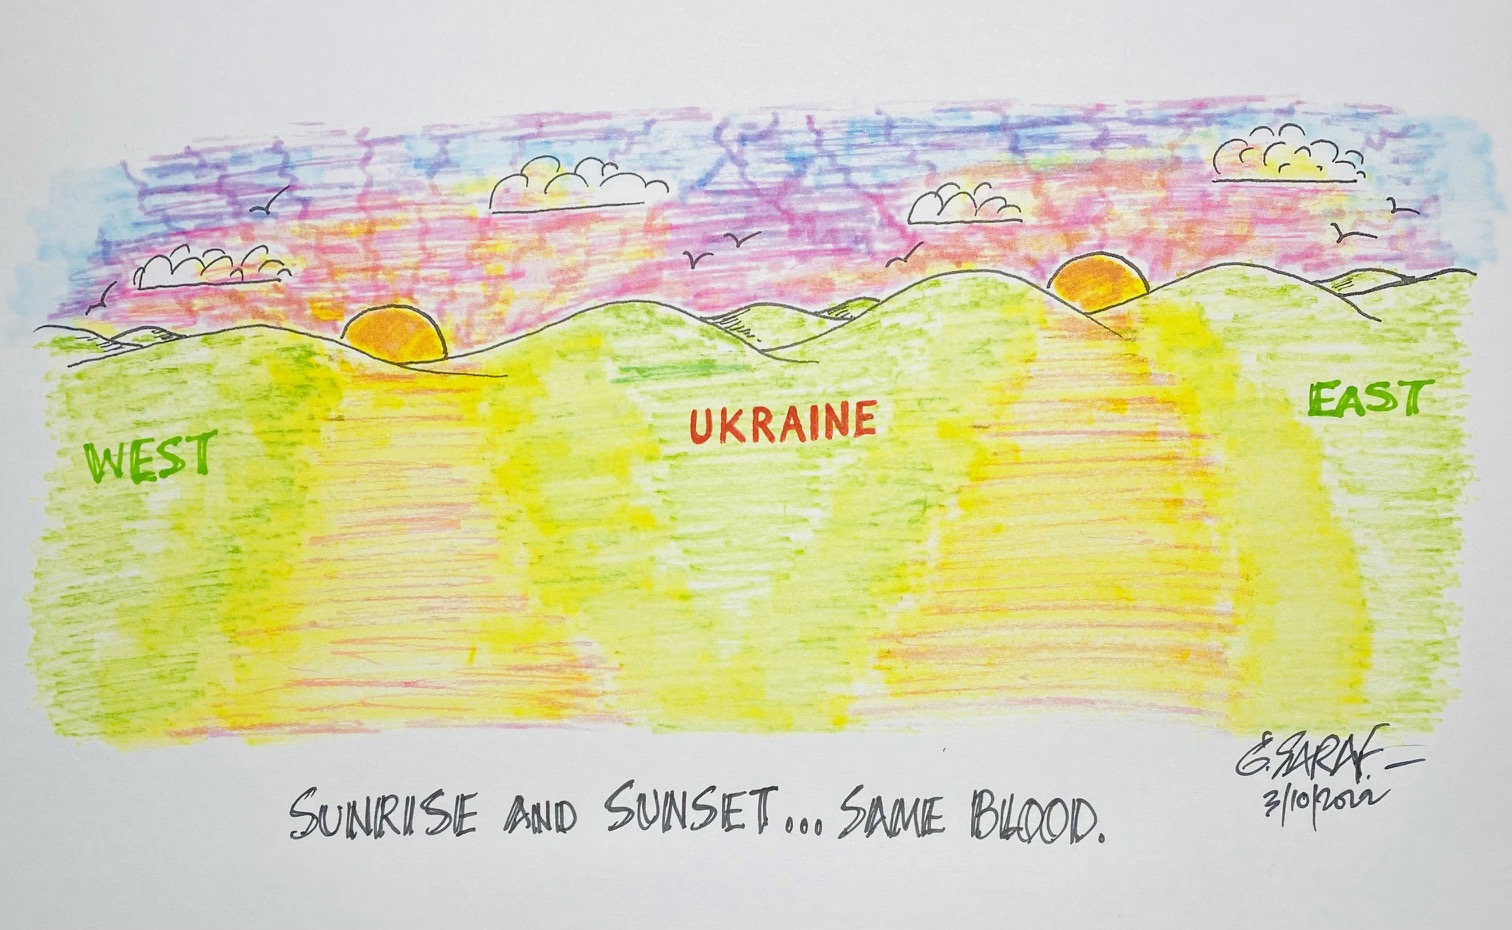 WEST
UKRAINE
EAST
SUNRISE AND SUNSET... SAME BLOOD.
G. SARAF.
3/10/2022